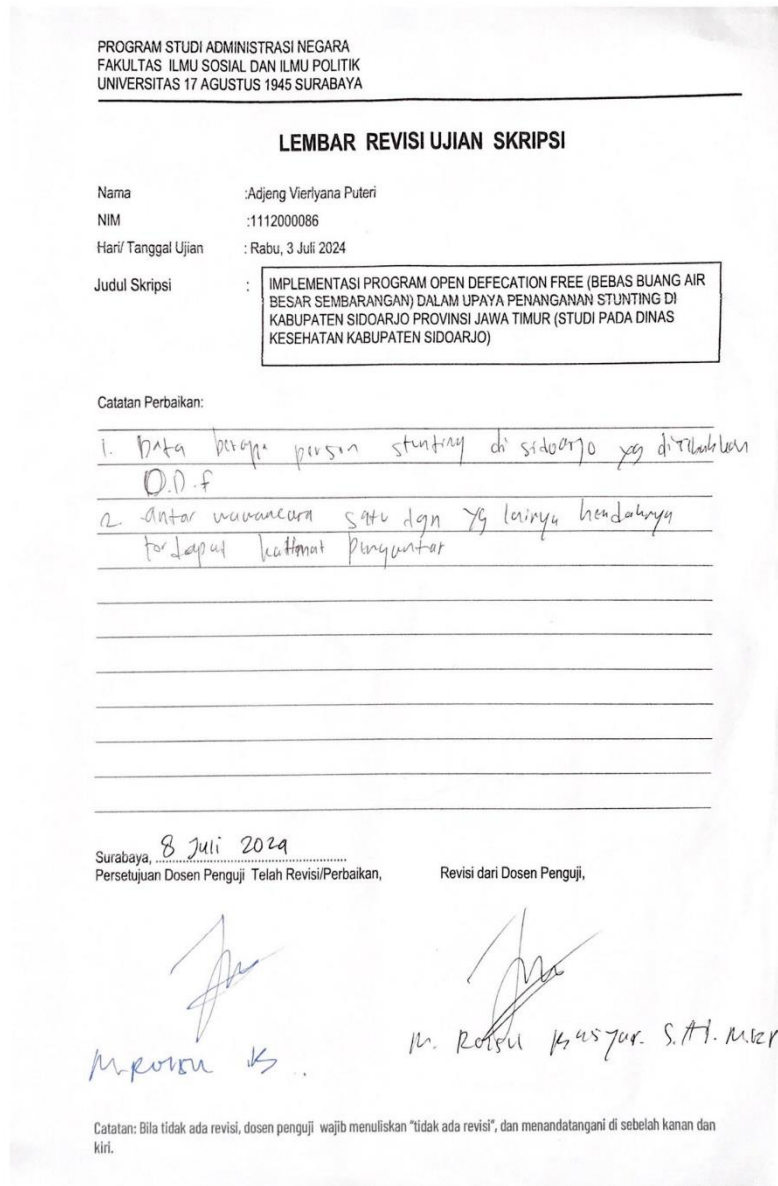 PROGRAM STUDI ADMINISTRASI NEGARA
FAKULTAS ILMU SOSIAL DAN ILMU POLITIK
UNIVERSITAS 17 AGUSTUS 1945 SURABAYA
LEMBAR REVISI UJIAN SKRIPSI
Nama :Adjeng Vierlyana Puteri
NIM :1112000086
Hari/ Tanggal Ujian : Rabu, 3 Juli 2024
Judul Skripsi : IMPLEMENTASI PROGRAM OPEN DEFECATION FREE (BEBAS BUANG AIR
BESAR SEMBARANGAN) DALAM UPAYA PENANGANAN STUNTING DI
KABUPATEN SIDOARJO PROVINSI JAWA TIMUR (STUDI PADA DINAS
KESEHATAN KABUPATEN SIDOARJO)
Catatan Perbaikan:
1. Data berapa persen stunting di sidoarjo yg
O.D.F
2. antar wawancara satu dgn yg lainya hendaknya
terdapat kalimat pengantar
Surabaya, 8 Juli 2024
Persetujuan Dosen Penguji Telah Revisi/Perbaikan, Revisi dari Dosen Penguji,
M. M.
Catatan: Bila tidak ada revisi, dosen penguji wajib menuliskan "tidak ada revisi", dan menandatangani di sebelah kanan dan
kiri.